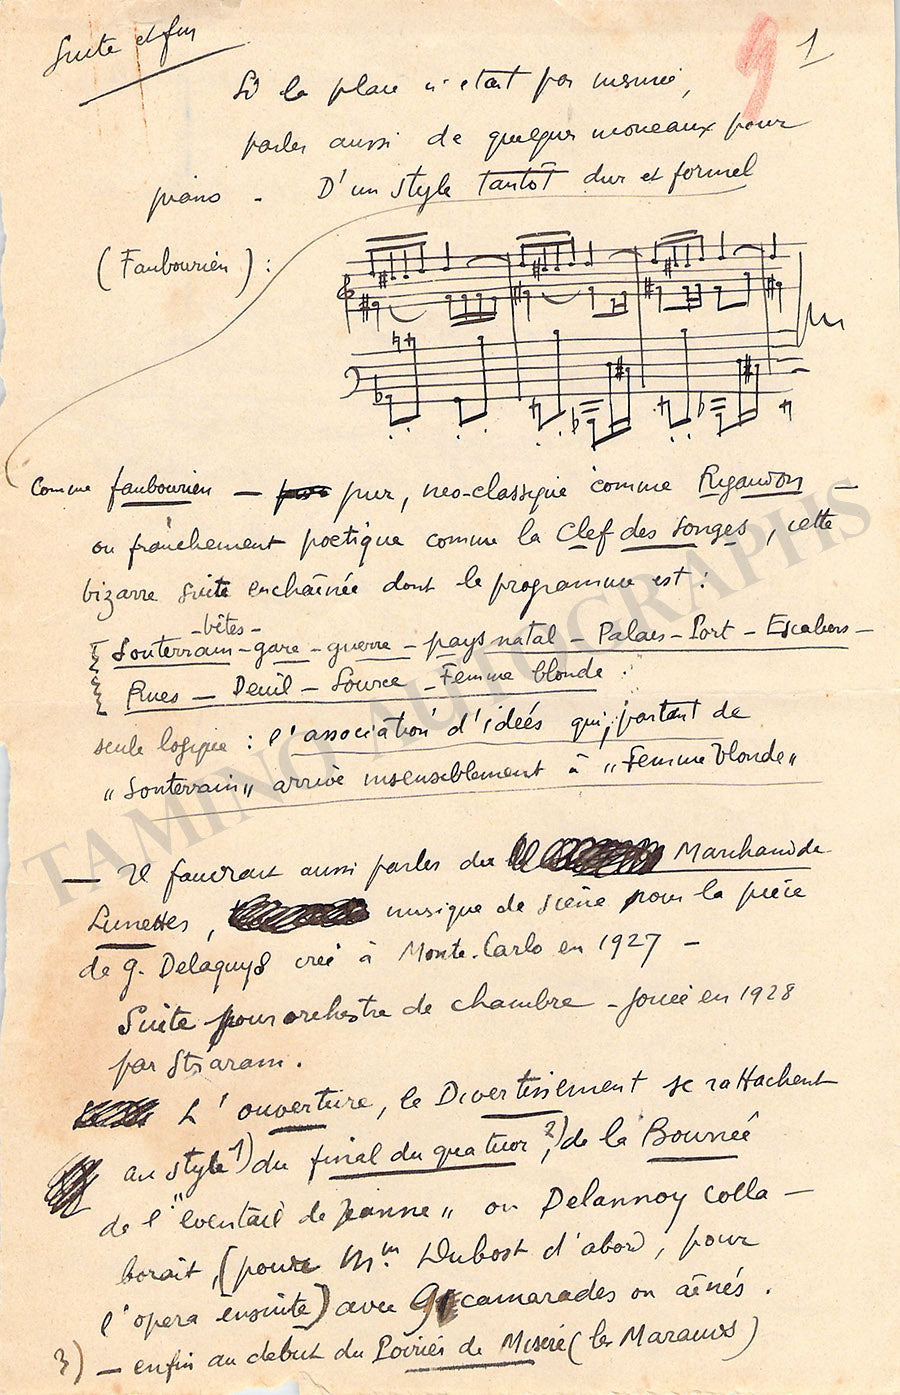 Suite et fin
9 1
Si la place n'était pas mesurée,
parler aussi de quelques morceaux pour
piano - D'un style tantôt dur et formel
(Faubourien) :
comme faubourien - pur, neo-classique comme Rigaudon -
ou franchement poetique comme la Clef des songes, cette
bizarre suite enchaînée dont le programme est :
- bêtes -
Souterrain - gare - guerre - pays natal - Palais - Port - Escaliers -
Rues - Deuil - Source - Femme blonde :
seule logique : l'association d'idées qui, partant de
"Souterrain" arrive insensiblement à "Femme blonde"
- Il faudrait aussi parler du Marchand de
Lunettes, musique de scène pour la pièce
de G. Delaquys créé à Monte-Carlo en 1927 -
Suite pour orchestre de chambre - jouée en 1928
par Straram.
L'ouverture, le Divertissement se rattachent
au style 1) du final du quatuor, 2) de la Bourrée
de l'"eventail de Jeanne" ou Delannoy colla-
borait, (pour Mm. Dubost d'abord, pour
l'opera ensuite) avec 9 camarades ou aînés.
3) - enfin au debut du Poirier de Misère (les Marauds)
TAMINO AUTOGRAPHS